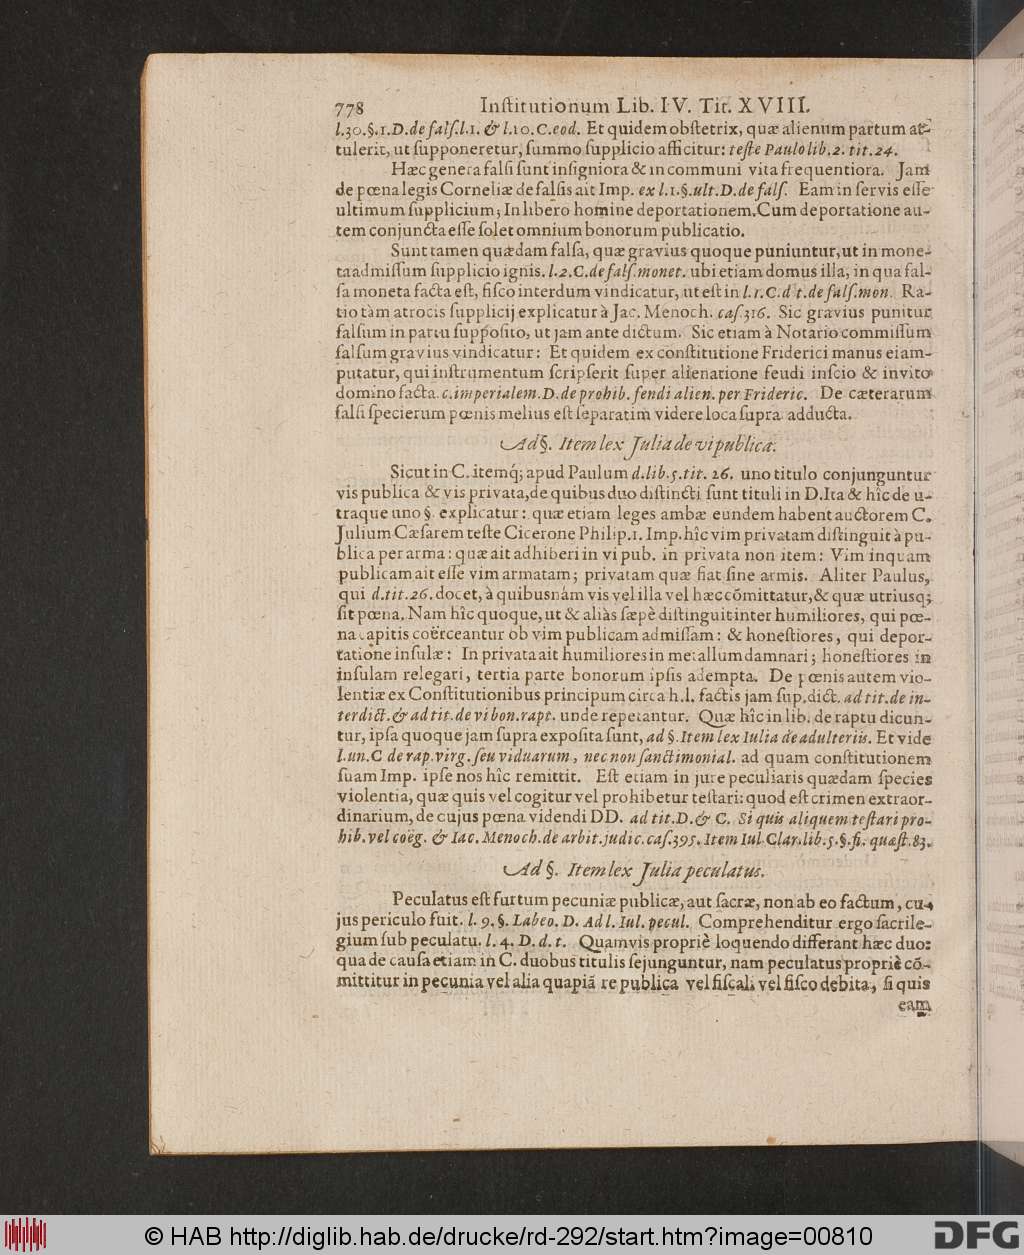 778 Inſtitutionum Lib. IV. Tit. XVIII.
l.30.§.1.D.de falſ.l.1. & l.10.C.eod. Et quidem obſtetrix, quæ alienum partum at-
tulerit, ut ſupponeretur, ſummo ſupplicio afficitur: teſte Paulo lib. 2. tit. 24.
Hæc genera falſi ſunt inſigniora & in communi vita frequentiora. Jam
de pœna legis Corneliæ de falſis ait Imp. ex l.1.§.ult.D.de falſ. Eam in ſervis eſſe
ultimum ſupplicium; In libero homine deportationem. Cum deportatione au-
tem conjuncta eſſe ſolet omnium bonorum publicatio.
Sunt tamen quædam falſa, quæ gravius quoque puniuntur, ut in mone-
ta admiſſum ſupplicio ignis. l.2.C.de falſ.monet. ubi etiam domus illa, in qua fal-
ſa moneta facta eſt, fiſco interdum vindicatur, ut eſt in l.1.C.d t.de falſ.mon. Ra-
tio tàm atrocis ſupplicij explicatur à Jac. Menoch. caſ.316. Sic gravius punitur
falſum in partu ſuppoſito, ut jam ante dictum. Sic etiam à Notario commiſſum
falſum gravius vindicatur: Et quidem ex conſtitutione Friderici manus eiam-
putatur, qui inſtrumentum ſcripſerit ſuper alienatione feudi inſcio & invito
domino facta. c.imperialem.D.de prohib. fendi alien. per Frideric. De cæterarum
falſi ſpecierum pœnis melius eſt ſeparatim videre loca ſupra adducta.
Ad §. Item lex Julia de vi publica.
Sicut in C. itemq́; apud Paulum d.lib.5.tit. 26. uno titulo conjunguntur
vis publica & vis privata, de quibus duo diſtincti ſunt tituli in D. Ita & hîc de u-
traque uno §. explicatur: quæ etiam leges ambæ eundem habent auctorem C.
Julium Cæſarem teſte Cicerone Philip.1. Imp. hîc vim privatam diſtinguit à pu-
blica per arma: quæ ait adhiberi in vi pub. in privata non item: Vim inquam
publicam ait eſſe vim armatam; privatam quæ fiat ſine armis. Aliter Paulus,
qui d.tit.26. docet, à quibusnám vis vel illa vel hæc cõmittatur, & quæ utriusq;
ſit pœna. Nam hîc quoque, ut & aliàs ſæpè diſtinguit inter humiliores, qui pœ-
na capitis coërceantur ob vim publicam admiſſam: & honeſtiores, qui depor-
tatione inſulæ: In privata ait humiliores in metallum damnari; honeſtiores in
inſulam relegari, tertia parte bonorum ipſis adempta. De pœnis autem vio-
lentiæ ex Conſtitutionibus principum circa h.l. factis jam ſup. dict. ad tit. de in-
terdict. & ad tit. de vi bon. rapt. unde repetantur. Quæ hîc in lib. de raptu dicun-
tur, ipſa quoque jam ſupra expoſita ſunt, ad §. Item lex Iulia de adulteriis. Et vide
l.un.C de rap.virg. ſeu viduarum, nec non ſanctimonial. ad quam conſtitutionem
ſuam Imp. ipſe nos hîc remittit. Eſt etiam in jure peculiaris quædam ſpecies
violentia, quæ quis vel cogitur vel prohibetur teſtari: quod eſt crimen extraor-
dinarium, de cujus pœna videndi DD. ad tit. D. & C. Si quis aliquem teſtari pro-
hib. vel coëg. & Iac. Menoch. de arbit. judic. caſ.395. Item Iul. Clar. lib. 5. §. fi. quæſt. 83.
Ad §. Item lex Julia peculatus.
Peculatus eſt furtum pecuniæ publicæ, aut ſacræ, non ab eo factum, cu-
jus periculo fuit. l. 9. §. Labeo. D. Ad l. Iul. pecul. Comprehenditur ergo ſacrile-
gium ſub peculatu. l. 4. D. d. t. Quamvis propriè loquendo differant hæc duo:
qua de cauſa etiam in C. duobus titulis ſejunguntur, nam peculatus propriè cõ-
mittitur in pecunia vel alia quapiã re publica vel fiſcali vel fiſco debita, ſi quis
eam
© HAB http://diglib.hab.de/drucke/rd-292/start.htm?image=00810
DFG